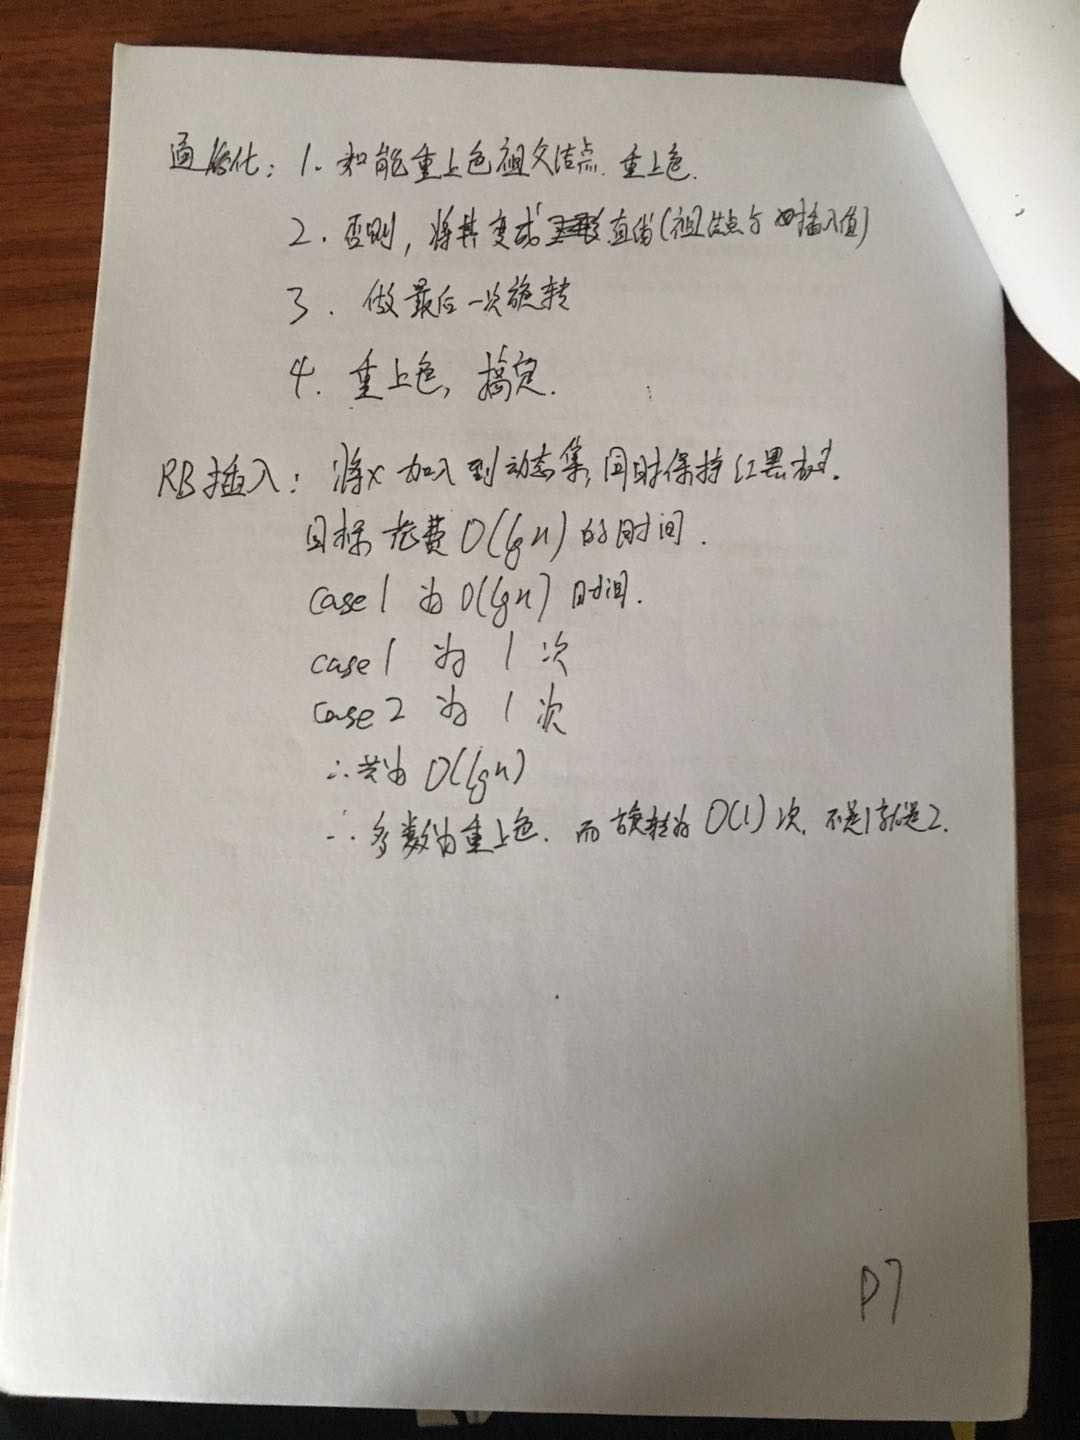 通俗化：1. 如能重上色祖父结点. 重上色.
2. 否则, 将其变成直的(祖结点与插入值)
3. 做最后一次旋转
4. 重上色, 搞定.
RB插入：将x加入到动态集, 同时保持红黑树.
目标花费O(lgn)的时间.
case1 为 O(lgn) 时间.
case1 为 1 次
case2 为 1 次
∴共为 O(lgn)
∴多数为重上色. 而旋转为 O(1) 次. 不是1就是2.
P7